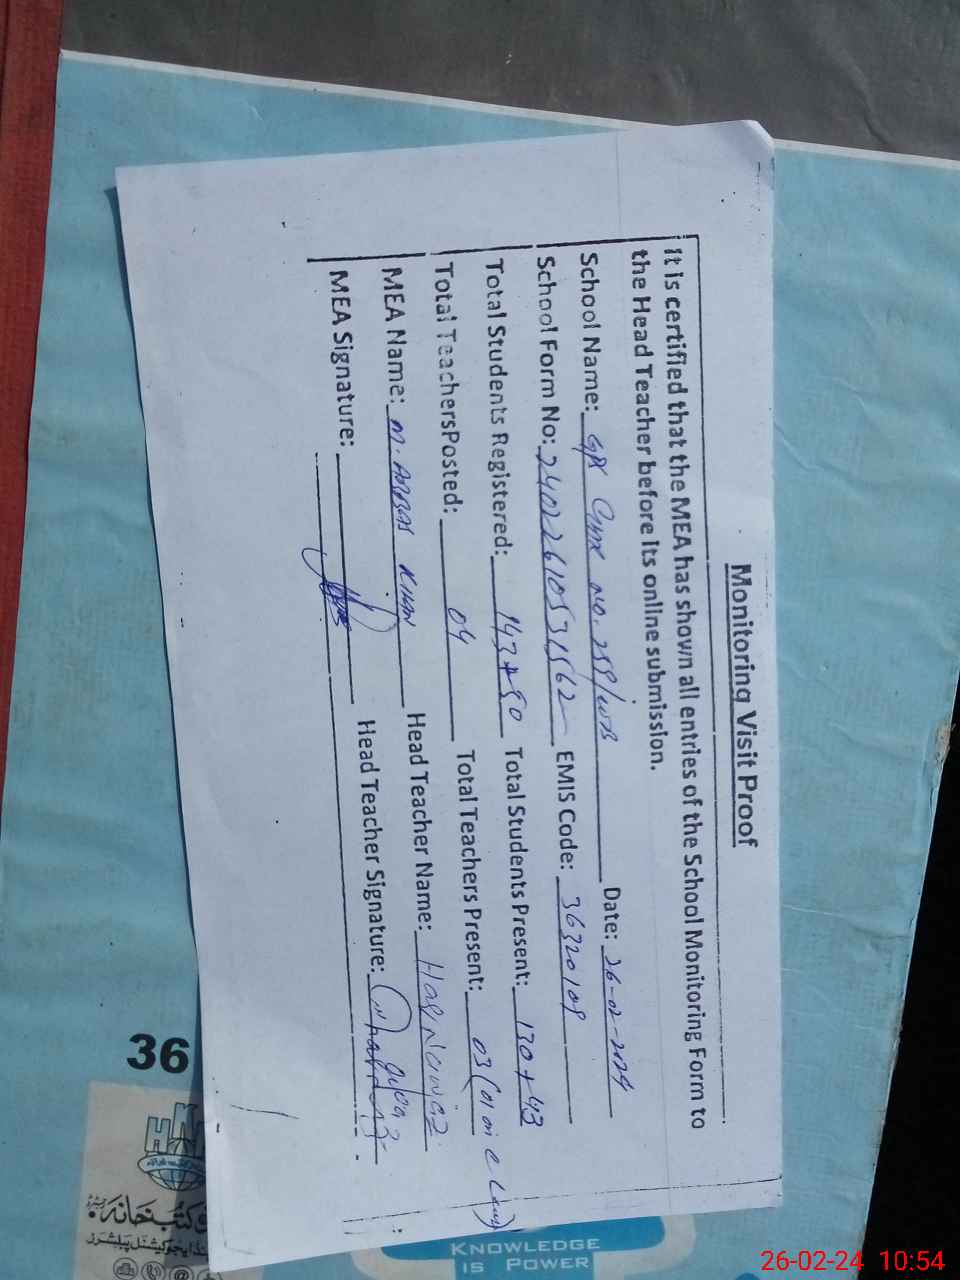 Monitoring Visit Proof
It is certified that the MEA has shown all entries of the School Monitoring Form to
the Head Teacher before its online submission.
School Name: GPS Chak No. 259/WB Date: 26-02-2024
School Form No: 24022610531562 EMIS Code: 36320109
Total Students Registered: 143+50 Total Students Present: 130+43
Total TeachersPosted: 04 Total Teachers Present: 03 (01 on C Leave)
MEA Name: M. Abbas Khan Head Teacher Name: Haq Nawaz
MEA Signature: Head Teacher Signature:
36
کتب خانہ
KNOWLEDGE
IS POWER
26-02-24 10:54